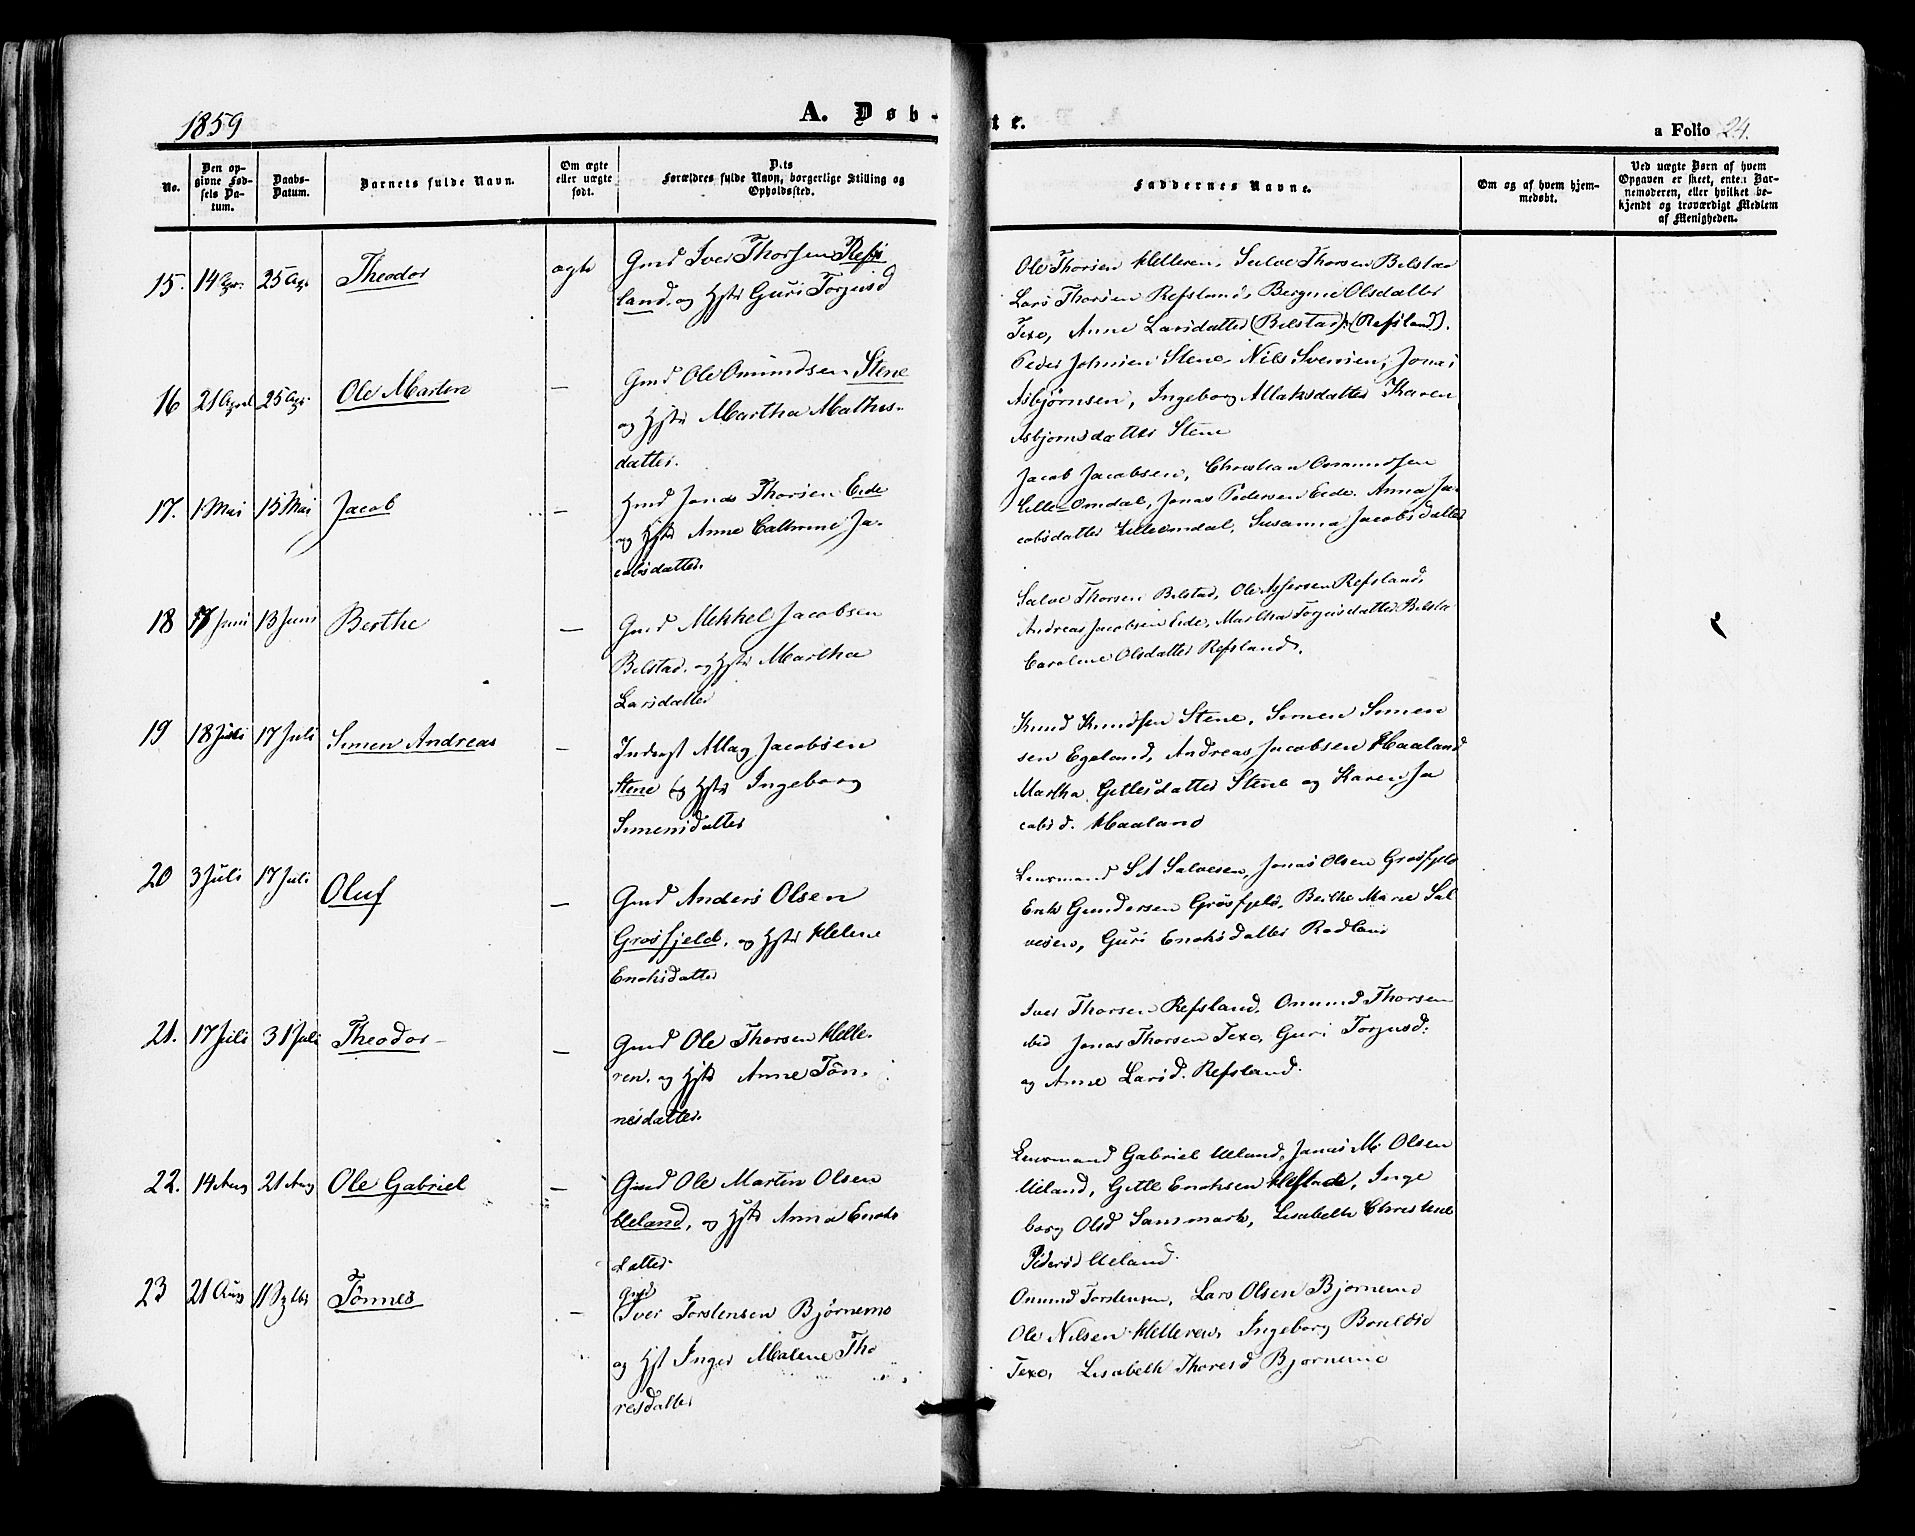 1859
A. Døb-
te.
a Folio 24.
No.
Den op-
givne Fød-
sels Da-
tum.
Daabs-
Datum.
Barnets fulde Navn.
Om ægte
eller uægte
født.
Dets
Forældres fulde Navn, borgerlige Stilling og
Opholdssted.
Faddernes Navne.
Om og af hvem hjem-
medøbt.
Ved uægte Børn af hvem
Opgaven er skeet, enten Bar-
nemoderen, eller hvilket be-
kjendt og troværdigt Medlem
af Menigheden.
15. 14 Apr. 25 Apr Theodor ægte
Gmd Iver Thorsen Refs
land. og Hstr Guri Torjusd
Ole Thorsen Helleren, Salve Thorsen Bilstad
Lars Thorsen Refsland, Bergine Olsdatter
Texe, Anne Larsdatter (Bilstad) (Refsland).
16 21 April 25 Apr Ole Martin —
Gmd Ole Omundsen Stene
og Hstr Martha Mathis-
datter.
Peder Johnsen Stene Nils Svensen, Jonas
Asbjørnsen, Ingeborg Allaksdatter Karen
Asbjørnsdatter Stene
17. 1 Mai 15 Mai Jacob —
Hmd Jonas Thorsen Eide
og Hstr Anne Cathrine Ja-
cobsdatter.
Jacob Jacobsen, Christian Omundsen
Lille-Omdal, Jonas Pedersen Eide. Anna Ja-
cobsdatter Lilleomdal, Susanna Jacobsdatter
18 7 Juni 13 Juni Berthe —
Gmd Mekkel Jacobsen
Bilstad. og Hstr Martha
Larsdatter
Salve Thorsen Bilstad, Ole Assersen Refsland,
Andreas Jacobsen Eide, Martha Torjusdatter Bilsta
Caroline Olsdatter Refsland.
19 18 Juli 17 Juli Simen Andreas —
Inderst Allag Jacobsen
Stene og Hstr Ingeborg
Simensdatter
Knud Knudsen Stene, Simen Simen
sen Egeland, Andreas Jacobsen Haaland
Martha Gitlesdatter Stene og Karen Ja
cobsd. Haaland
20 3 Juli 17 Juli Oluf —
Gmd Anders Olsen
Grøsfjeld, og Hstr Helene
Enoksdatter
Lensmand S A Salvesen, Jonas Olsen Grøsfjeld
Erik Gundersen Grøsfjeld, Berthe Marie Sal
vesen, Guri Enoksdatter Rodland
21. 17 Juli 31 Juli Theodor —
Gmd Ole Thorsen Helle-
ren. og Hstr Anne Tøn-
nesdatter.
Iver Thorsen Refsland. Omund Thorsen
ibid Jonas Thorsen Texe, Guri Torjusd:
og Anne Larsd. Refsland.
22. 14 Aug 21 Aug Ole Gabriel —
Gmd Ole Martin Olsen
Ueland, og Hstr Anna Enoks
datter
Lensmand Gabriel Ueland, Jonas M. Olsen
Ueland, Gitle Enoksen Hestad, Inge
borg Olsd Sanmark, Lisabeth Christine
Pedersd Ueland.
23 21 Aug 11 Sptbr Tönnes —
Gmd
Iver Torstensen Bjørnemo
og Hst Inger Malene Tho
resdatter
Omund Torstensen, Lars Olsen Bjørnemo
Ole Nilsen Helleren, Ingeborg
Texe, Lisabeth Thoresd Bjørnemo